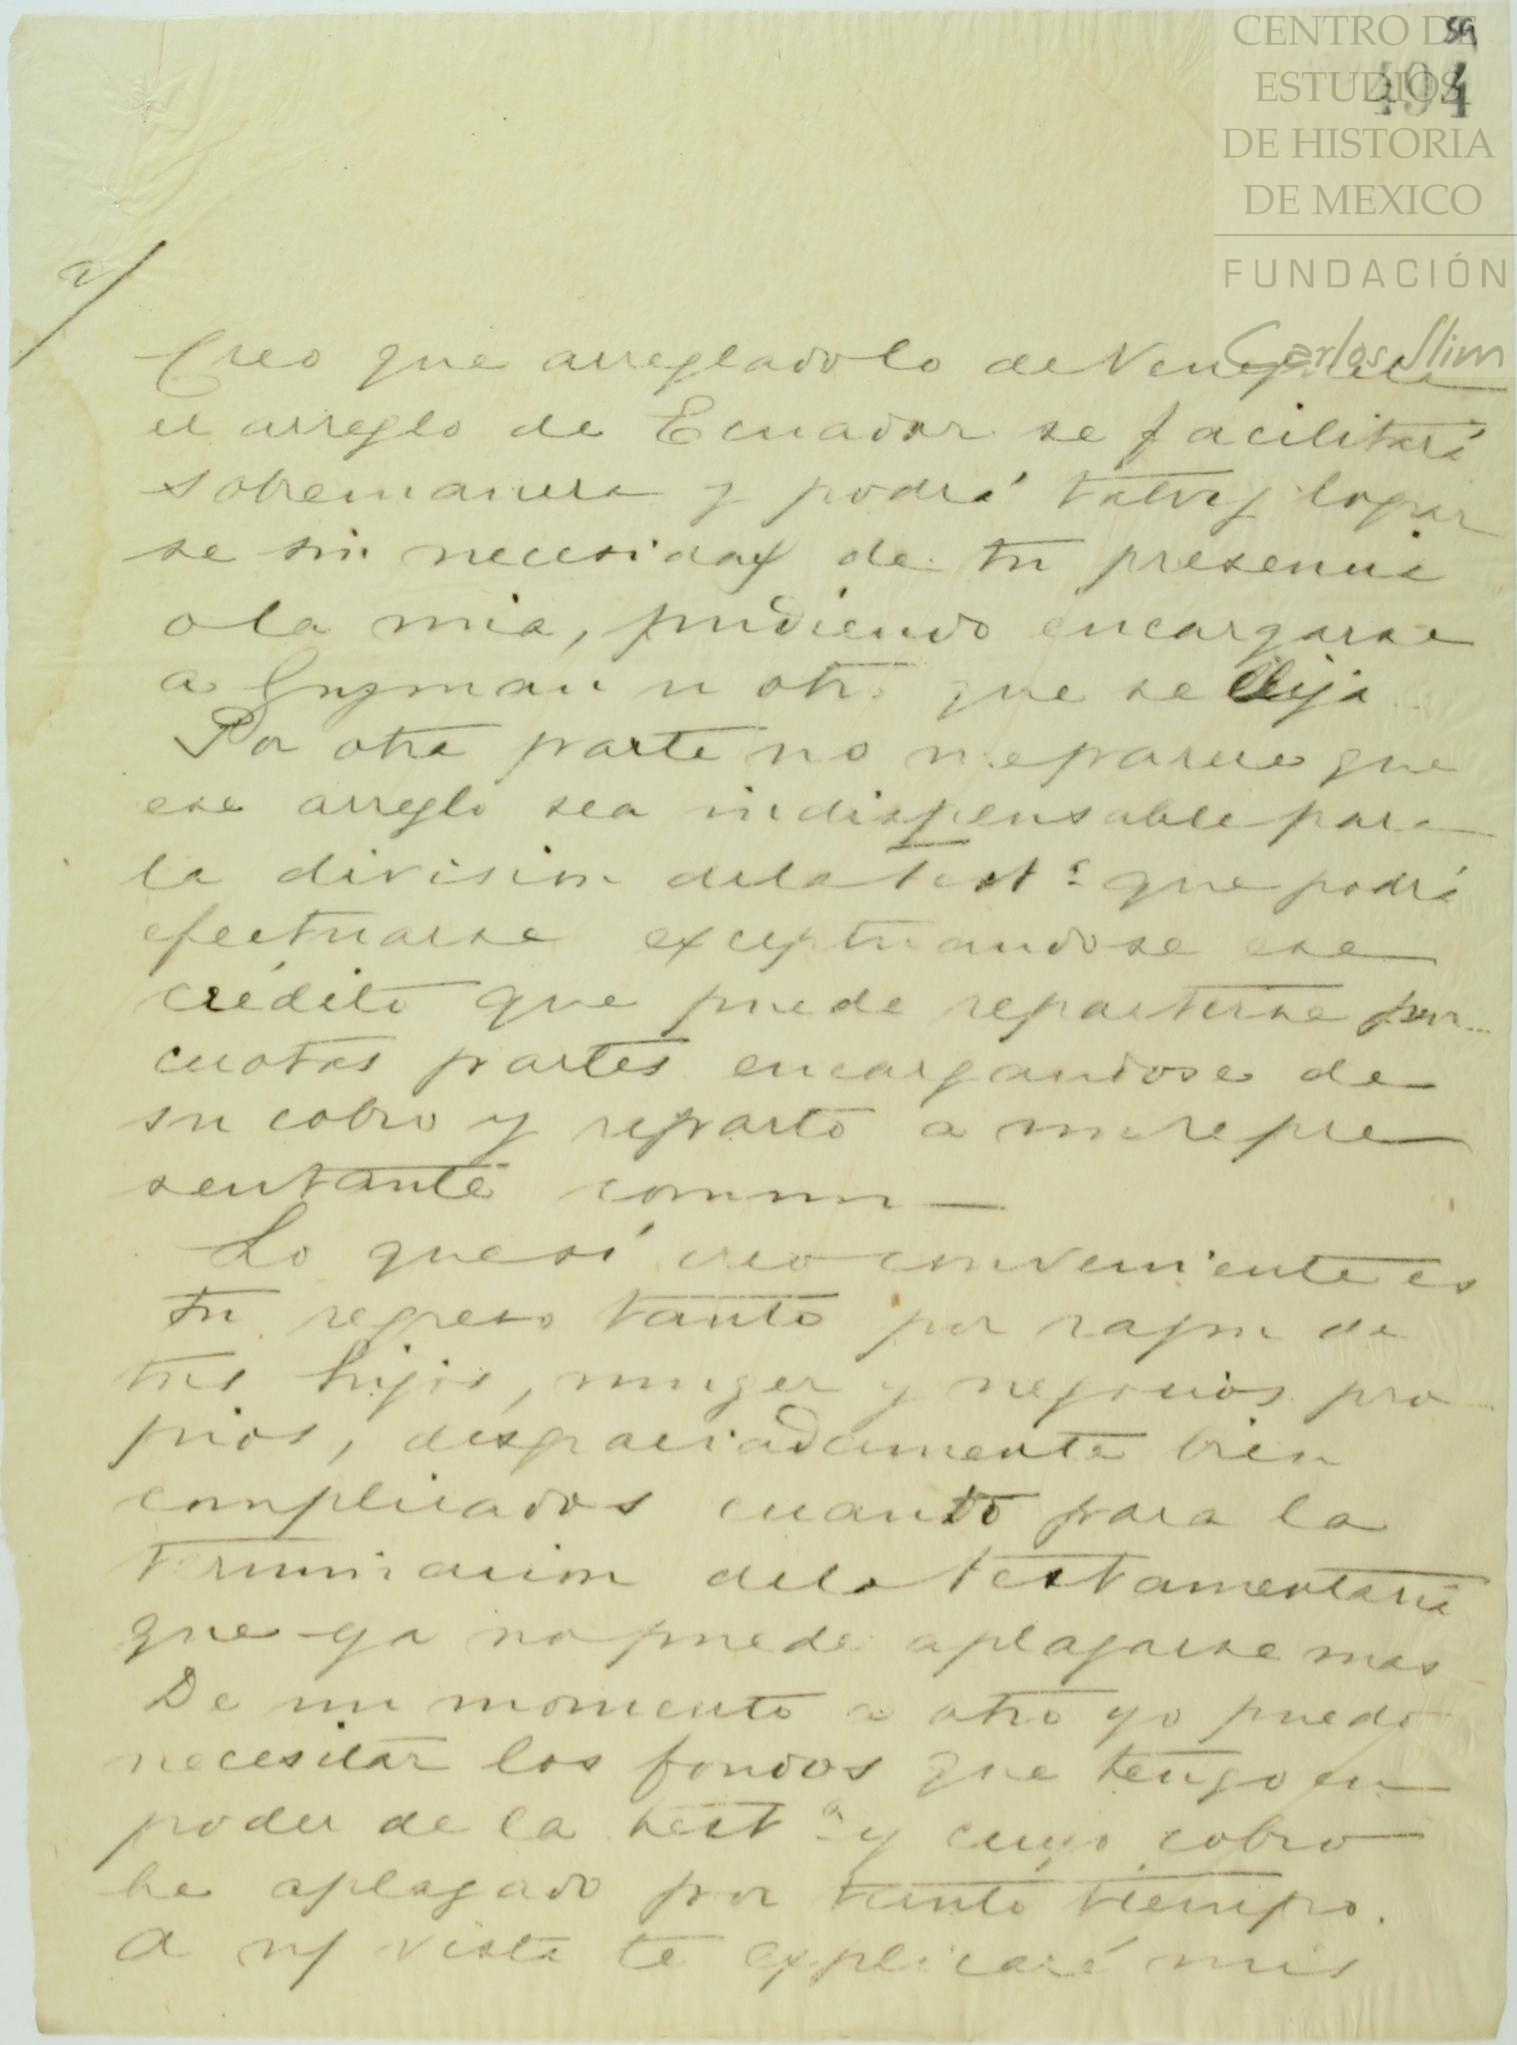 59
494
CENTRO DE
ESTUDIOS
DE HISTORIA
DE MEXICO
FUNDACIÓN
Carlos Slim
2/
Creo que arreglado lo de Venezuela
el arreglo de Ecuador se facilitará
sobremanera y podrá talvez lograr
se sin necesidad de tu presencia
o la mia, pudiendo encargarse
a Guzman u otro que se elija
Por otra parte no me parece que
ese arreglo sea indispensable para
la division de la Testª que podrá
efectuarse exceptuandose ese
crédito que puede repartirse por
cuotas partes encargandose de
su cobro y reparto a un repre
sentante comun —
Lo que sí creo conveniente es
tu regreso tanto por razon de
tus hijos, muger y negocios pro
pios, desgraciadamente bien
complicados cuanto para la
terminacion de la testamentaría
que ya no puede aplazarse mas
De un momento a otro yo puedo
necesitar los fondos que tengo en
poder de la testª y cuyo cobro
he aplazado por tanto tiempo.
A vista te explicaré mis